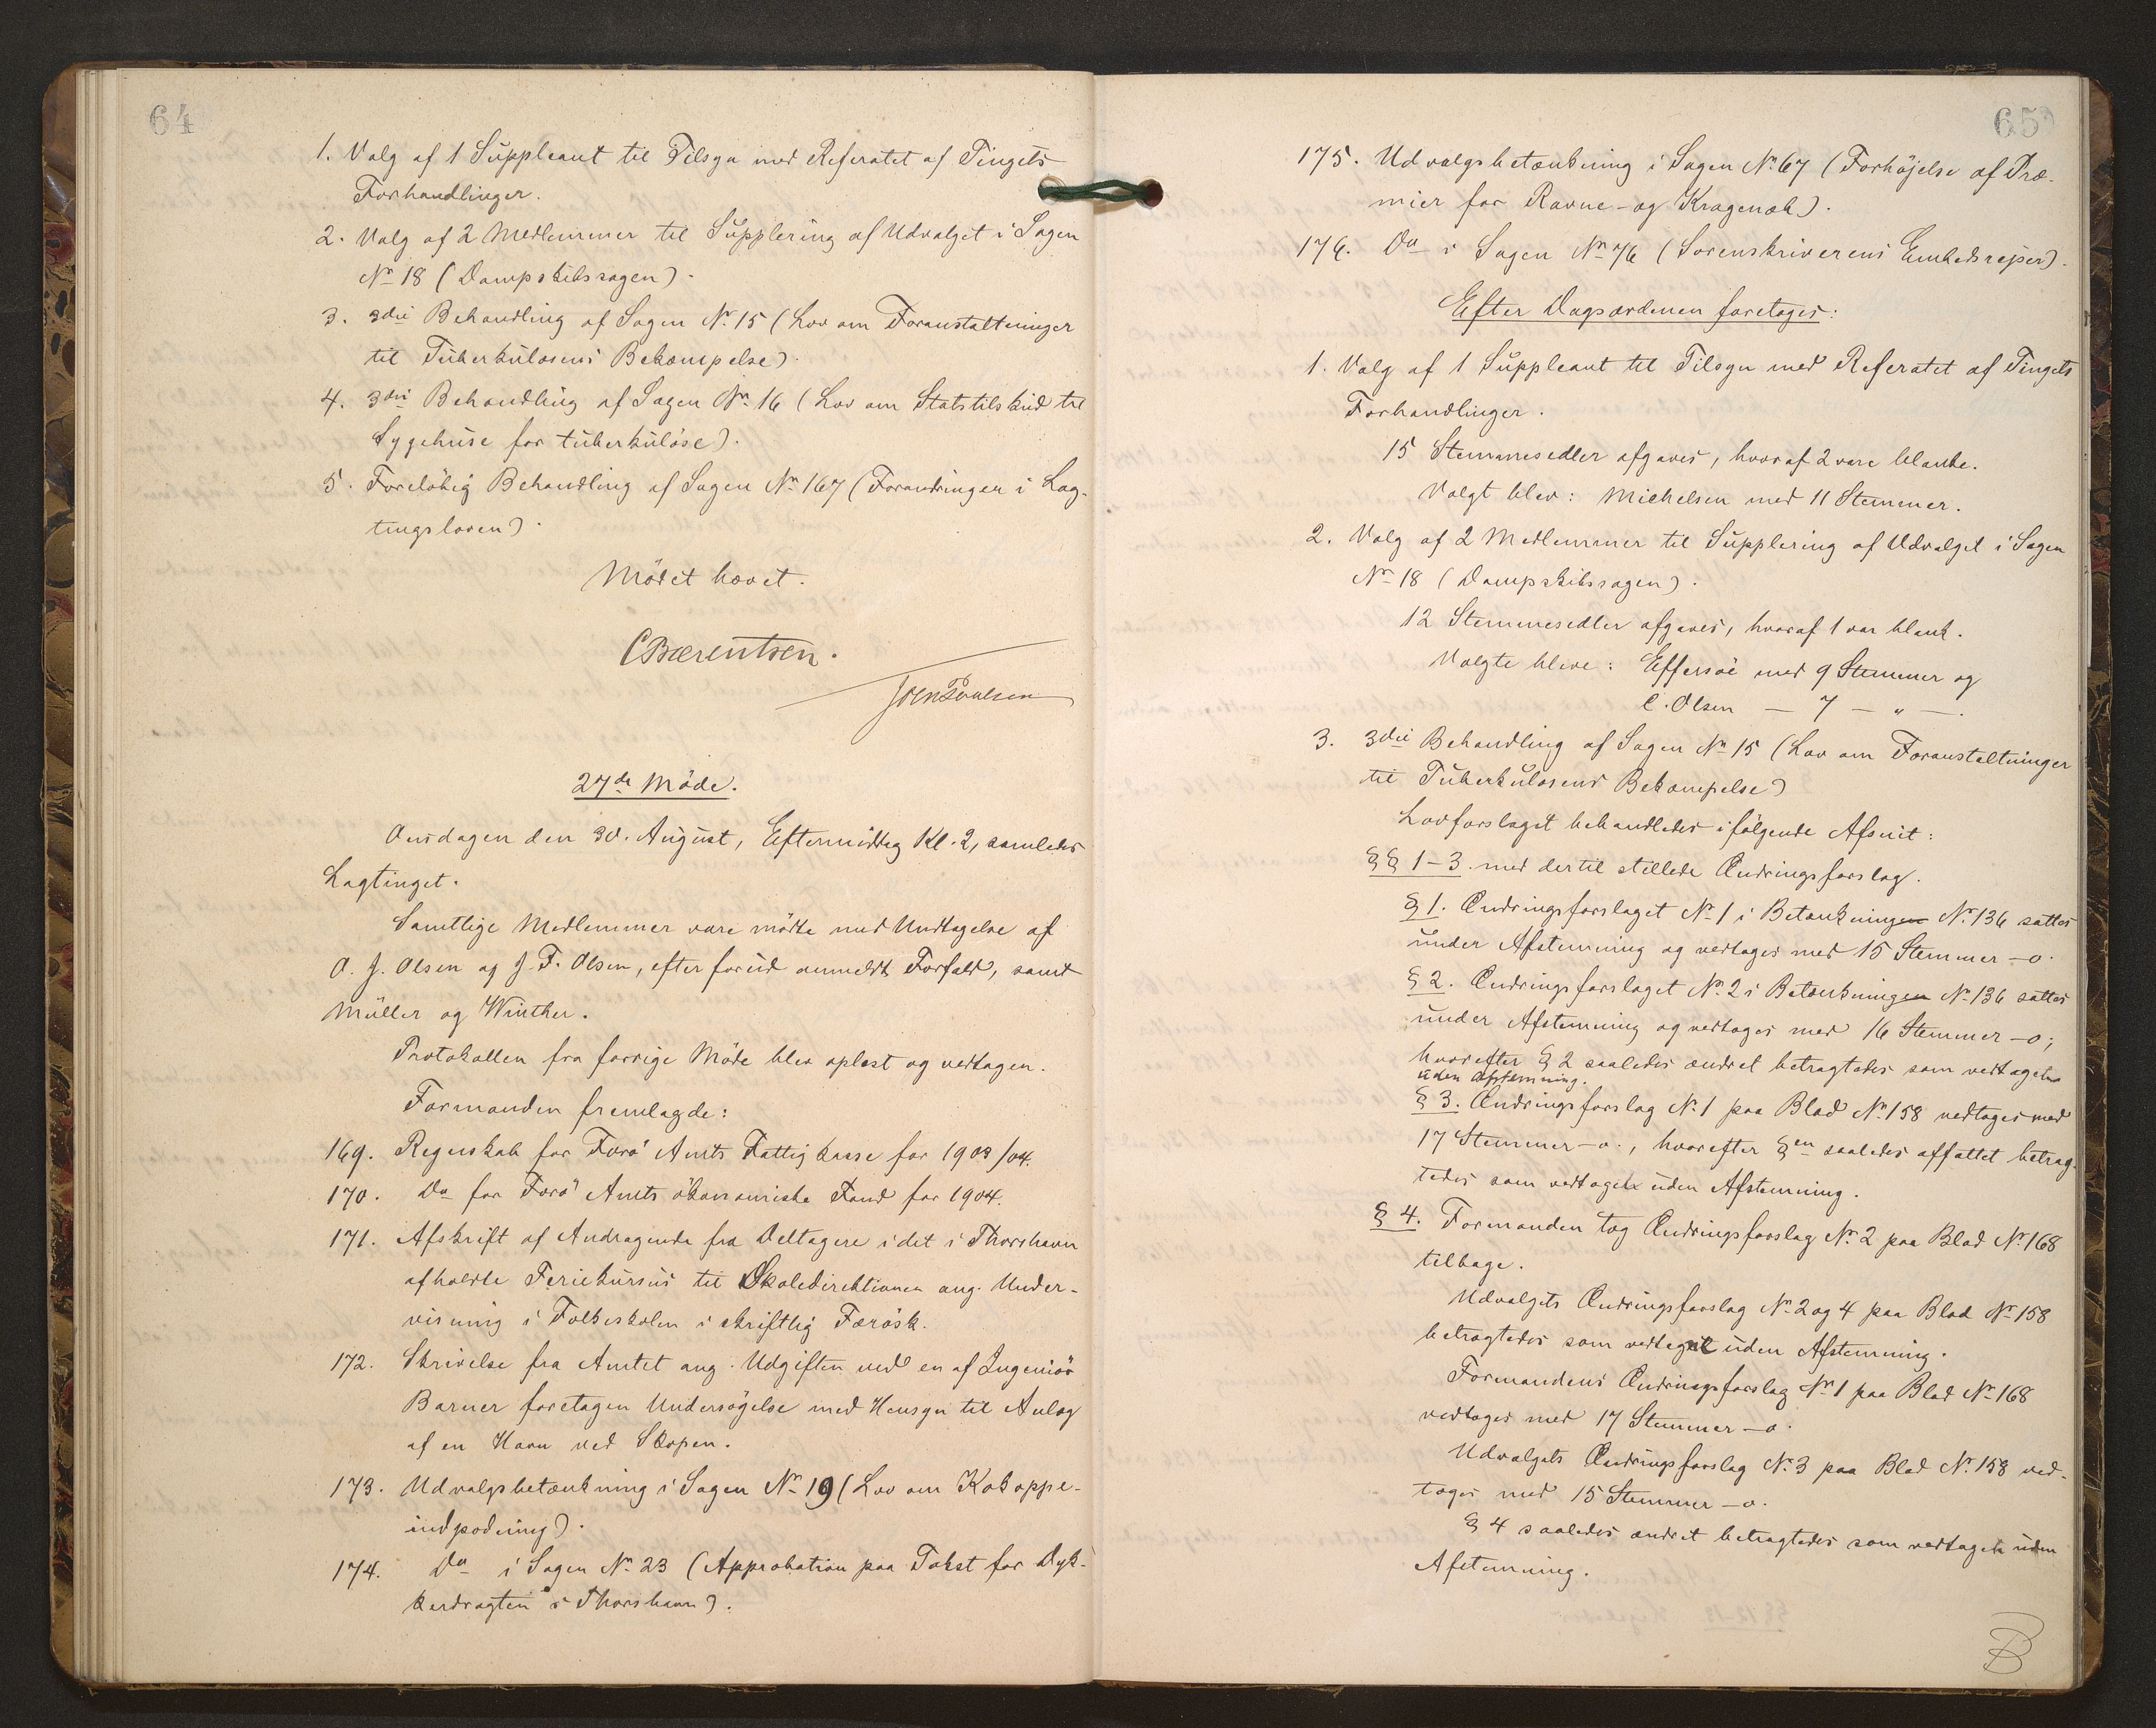 64
1. Valg af 1 Suppleant til Tilsyn med Referatet af Tingets
Forhandlinger.
2. Valg af 2 Medlemmer til Supplering af Udvalget i Sagen
No 18 (Dampskibssagen).
3. 3die Behandling af Sagen No 15 (Lov om Foranstaltninger
til Tuberkulosens Bekæmpelse).
4. 3die Behandling af Sagen No 16 (Lov om Statstilskud til
Sygehuse for tuberkuløse).
5. Foreløbig Behandling af Sagen No 167 (Forandringer i Lag-
tingsloven).
Mödet hævet.
C Bærentsen.
27de Möde.
Onsdagen den 30. August, Eftermiddag Kl. 2, samledes
Lagtinget.
Samtlige Medlemmer vare mödte med Undtagelse af
O. J. Olsen og J. F. Olsen, efter forud anmeldt Forfald, samt
Müller og Winther.
Protokollen fra forrige Möde blev oplæst og vedtagen.
Formanden fremlagde:
169. Regnskab for Færö Amts Fattigkasse for 1903/04.
170. Do for Færö Amts ökonomiske Fond for 1904.
171. Afskrift af Andragende fra Deltagere i det i Thorshavn
afholdte Feriekursus til Skoledirektionen ang. Under-
visning i Folkeskolen i skriftlig Færösk.
172. Skrivelse fra Amtet ang. Udgiften ved en af Ingeniör
Barner foretagen Undersögelse med Hensyn til Anlæg
af en Havn ved Skopen.
173. Udvalgsbetænkning i Sagen No 19 (Lov om Kokoppe-
indpodning).
174. Do i Sagen No 23 (Approbation paa Takst for Dyk-
kerdragten i Thorshavn).
65
175. Udvalgsbetænkning i Sagen No 67 (Forhöjelse af Præ-
mier for Ravne- og Kragenæb).
176. Do i Sagen No 76 (Sorenskriverens Embedsrejser).
Efter Dagsordenen foretoges:
1. Valg af 1 Suppleant til Tilsyn med Referatet af Tingets
Forhandlinger.
15 Stemmesedler afgaves, hvoraf 2 vare blanke.
Valgt blev: Michelsen med 11 Stemmer.
2. Valg af 2 Medlemmer til Supplering af Udvalget i Sagen
No 18 (Dampskibssagen).
12 Stemmesedler afgaves, hvoraf 1 var blank.
Valgte bleve: Effersöe med 9 Stemmer og
C. Olsen — 7 — " —.
3. 3die Behandling af Sagen No 15 (Lov om Foranstaltninger
til Tuberkulosens Bekæmpelse)
Lovforslaget behandledes i fölgende Afsnit:
§§ 1-3 med dertil stillede Ændringsforslag.
§ 1. Ændringsforslaget No 1 i Betænkningen No 136 sattes
under Afstemning og vedtoges med 15 Stemmer -o.
§ 2. Ændringsforslaget No 2 i Betænkningen No 136 sattes
under Afstemning og vedtoges med 16 Stemmer -o;
hvorefter § 2 saaledes ændret betragtedes som vedtaget
uden Afstemning.
§ 3. Ændringsforslag No 1 paa Blad No 158 vedtoges med
17 Stemmer -o., hvorefter §en saaledes affattet betrag-
tedes som vedtaget uden Afstemning.
§ 4. Formanden tog Ændringsforslag No 2 paa Blad No 168
tilbage.
Udvalgets Ændringsforslag No 2 og 4 paa Blad No 158
betragtedes som vedtaget uden Afstemning.
Formandens Ændringsforslag No 1 paa Blad No 168
vedtoges med 17 Stemmer -o.
Udvalgets Ændringsforslag No 3 paa Blad No 158 ved-
toges med 15 Stemmer -o.
§ 4 saaledes ændret betragtedes som vedtaget uden
Afstemning.
B